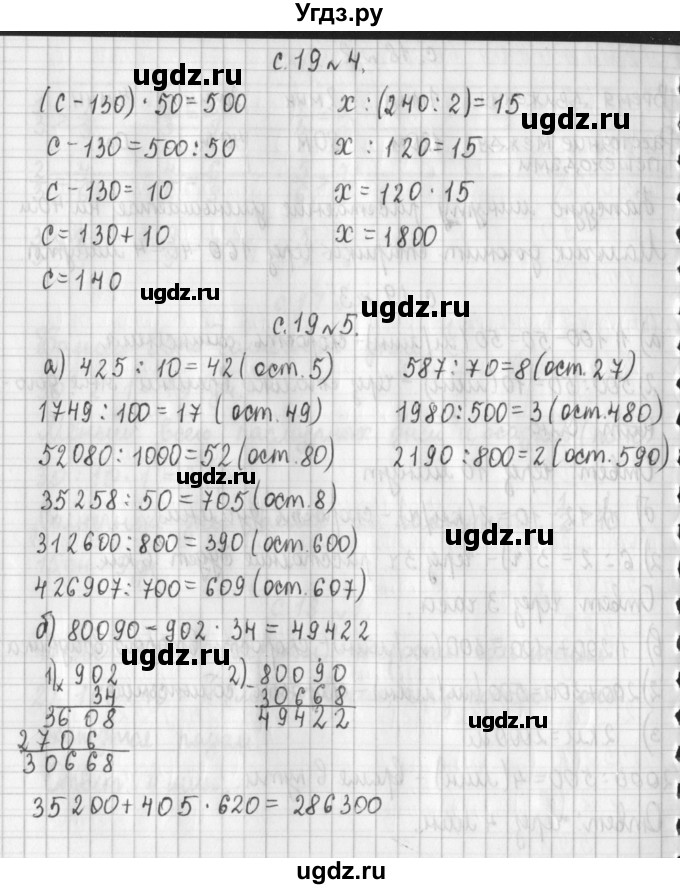 Угдз.ру
с.19 №4.
(с-130)·50=500 x:(240:2)=15
с-130=500:50 x:120=15
с-130=10 x=120·15
с=130+10 x=1800
с=140
с.19 №5.
а) 425:10=42(ост.5) 587:70=8(ост.27)
1749:100=17 (ост.49) 1980:500=3(ост.480)
52080:1000=52(ост.80) 2190:800=2(ост.590)
35258:50=705(ост.8)
312600:800=390(ост.600)
426907:700=609(ост.607)
б) 80090-902·34=49422
1) × 902 2) - 80090
34 30668
3608 49422
2706
30668
35200+405·620=286300
ugdz.ru
ugdz.ru
ugdz.ru
ugdz.ru
ugdz.ru
ugdz.ru
ugdz.ru
ugdz.ru
ugdz.ru